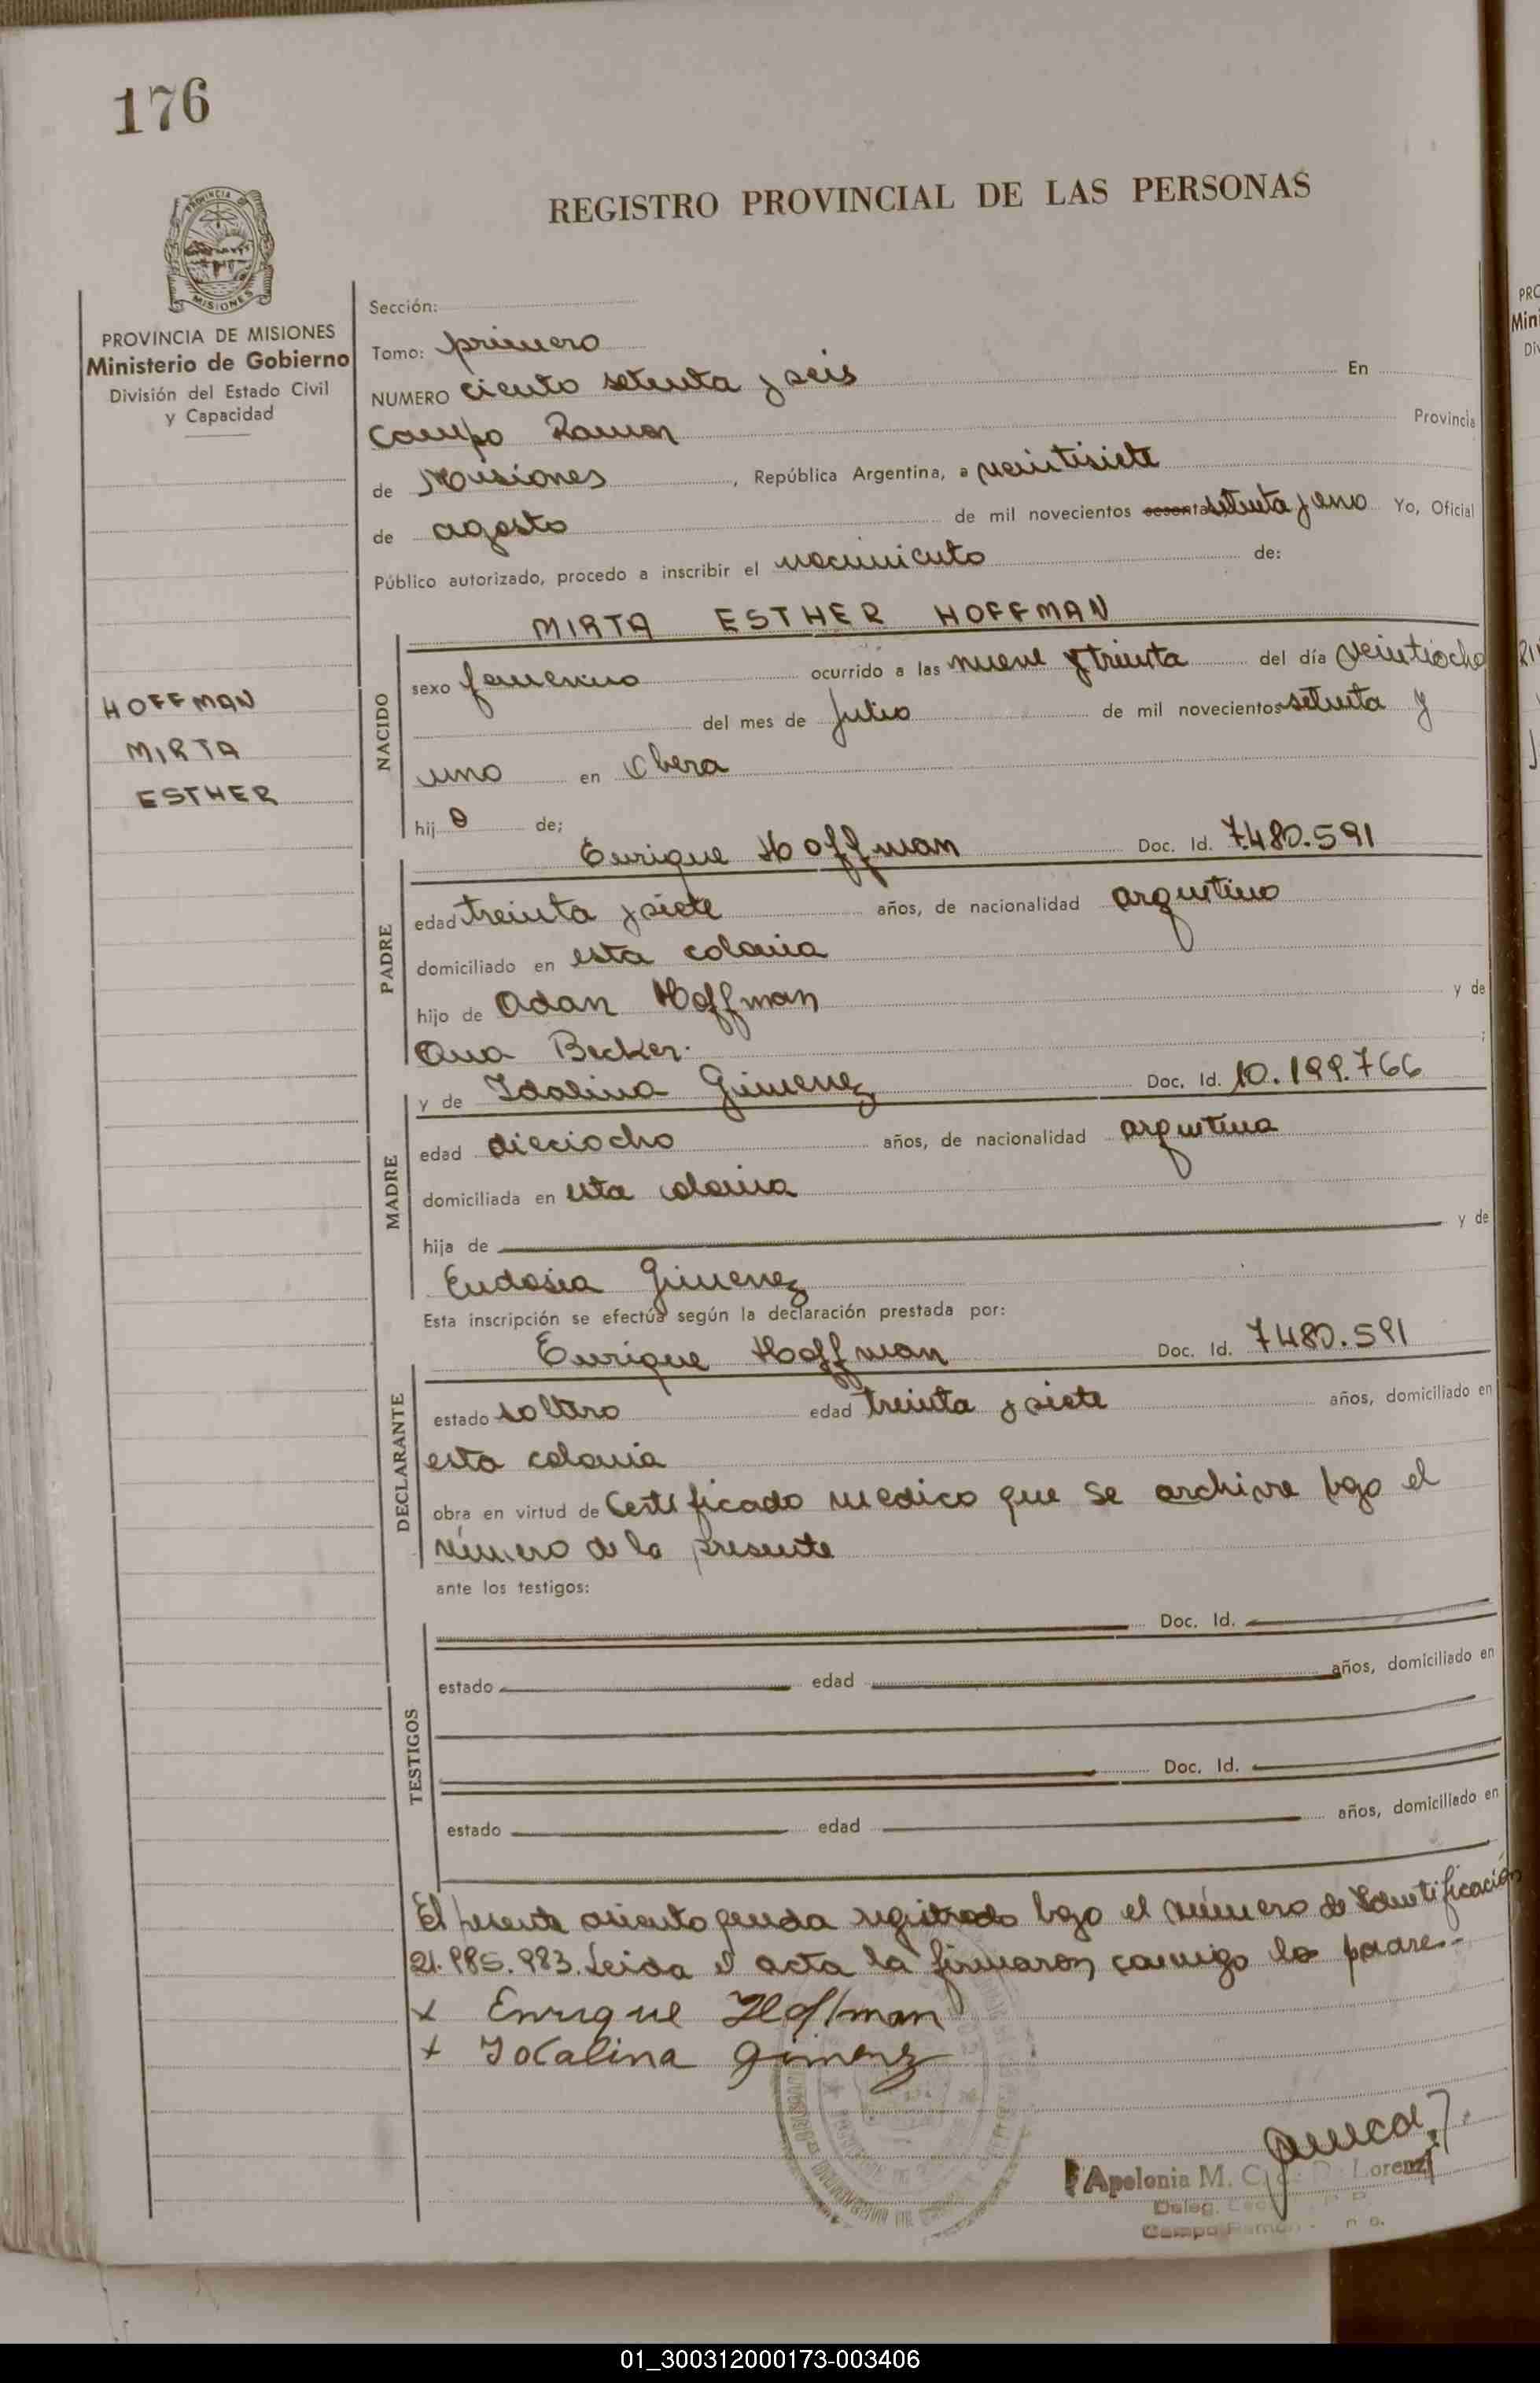 176
REGISTRO PROVINCIAL DE LAS PERSONAS
PROVINCIA DE
MISIONES
PROVINCIA DE MISIONES
Ministerio de Gobierno
División del Estado Civil
y Capacidad
HOFFMAN
MIRTA
ESTHER
Sección:
Tomo: primero
NUMERO ciento setenta y seis En
Campo Ramon Provincia
de Misiones, República Argentina, a veintisiete
de agosto de mil novecientos sesenta setenta y uno Yo, Oficial
Público autorizado, procedo a inscribir el nacimiento de:
MIRTA ESTHER HOFFMAN
NACIDO
sexo femenino ocurrido a las nueve y treinta del día veintiocho
del mes de Julio de mil novecientos setenta y
uno en Obera
hij a de;
Enrique Hoffman Doc. Id. 7.480.591
PADRE
edad treinta y siete años, de nacionalidad argentino
domiciliado en esta colonia
hijo de Adan Hoffman y de
Ana Becker. ;
y de Idalina Gimenez Doc. Id. 10.199.766
MADRE
edad dieciocho años, de nacionalidad argentina
domiciliada en esta colonia
hija de y de
Eudosia Gimenez
Esta inscripción se efectúa según la declaración prestada por:
Enrique Hoffman Doc. Id. 7480.591
DECLARANTE
estado soltero edad treinta y siete años, domiciliado en
esta colonia
obra en virtud de Certificado medico que se archiva bajo el
número de la presente
ante los testigos:
TESTIGOS
Doc. Id.
estado edad años, domiciliado en
Doc. Id.
estado edad años, domiciliado en
El presente asiento queda registrado bajo el número de Identificación
21.985.983. Leida el acta la firmaron conmigo los padres.-
x Enrique Hoffman
x Idalina Gimenez
Apolonia M. C. de D. Lorenzi
Deleg.
Campo Ramon
01_300312000173-003406